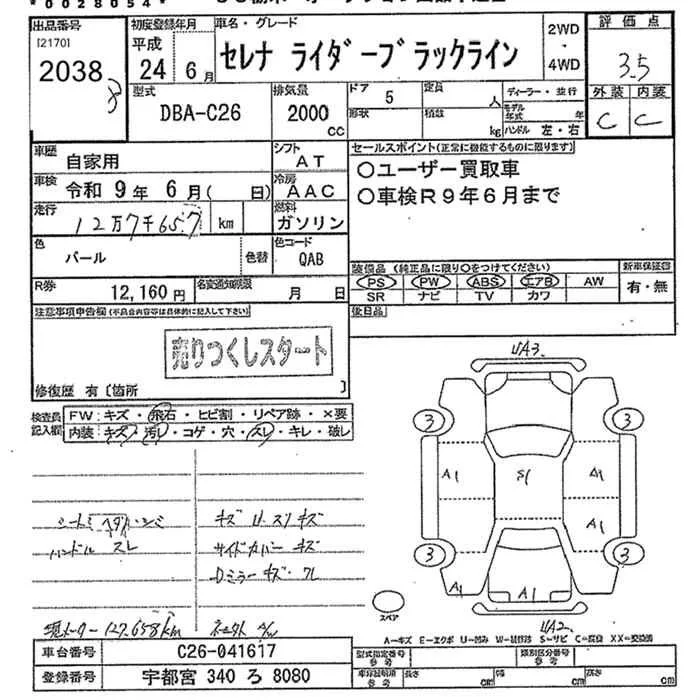 *0028054*
出品番号 初度登録年月 車名・グレード 評価点
[2170] 平成 2WD
2038 24年6月 セレナ ライダーブラックライン ・ 3.5
4WD
型式 排気量 ドア 定員 ディーラー・並行 外装 内装
DBA-C26 2000CC 5 人 モデル年式 年 C C
形状 積数 kg ハンドル 左・右
車歴 自家用 シフト AT セールスポイント(正常に機能するものに限ります)
車検 令和 9年 6月( 日) 冷房 AAC ○ユーザー買取車
走行 12万7千657km 燃料 ガソリン ○車検R9年6月まで
色 パール 色替 色コード QAB
装備品(純正品に限り○をつけてください) 新車保証書
R券 12,160円 名変通知期限 月 日 PS PW ABS エアB AW 有・無
SR ナビ TV カワ
注意事項申告欄(不具合内容等は具体的に記入して下さい) 後日品
売りつくしスタート
修復歴 有〔箇所 〕
検査員記入欄 FW:キズ・飛石・ヒビ割・リペア跡・×要
内装:キズ・汚レ・コゲ・穴・スレ・キレ・破レ
UA3
3 3
A1 S1 A1
A1
3 3
A1 A1
UA2
スペア
シート
ハンドル スレ
キズ キズ
サイドカバー キズ
Dミラーキズ・ワレ
127.658km A/W
A=キズ E=エクボ U=凹み W=補修跡 S=サビ C=腐食 XX=交換済
車台番号 C26-041617 型式指定番号 参考 類別区分番号 参考
登録番号 宇都宮 340 ろ 8080 車体諸元項 参考 長さ cm 幅 cm 高さ cm